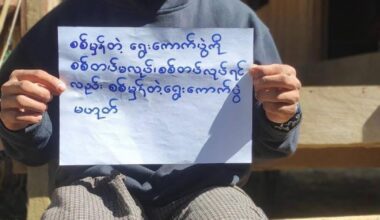 စစ်မှန်တဲ့ ရွေးကောက်ပွဲကို
စစ်တပ်မလုပ်၊ စစ်တပ်လုပ်ရင်
လည်း စစ်မှန်တဲ့ရွေးကောက်ပွဲ
မဟုတ်